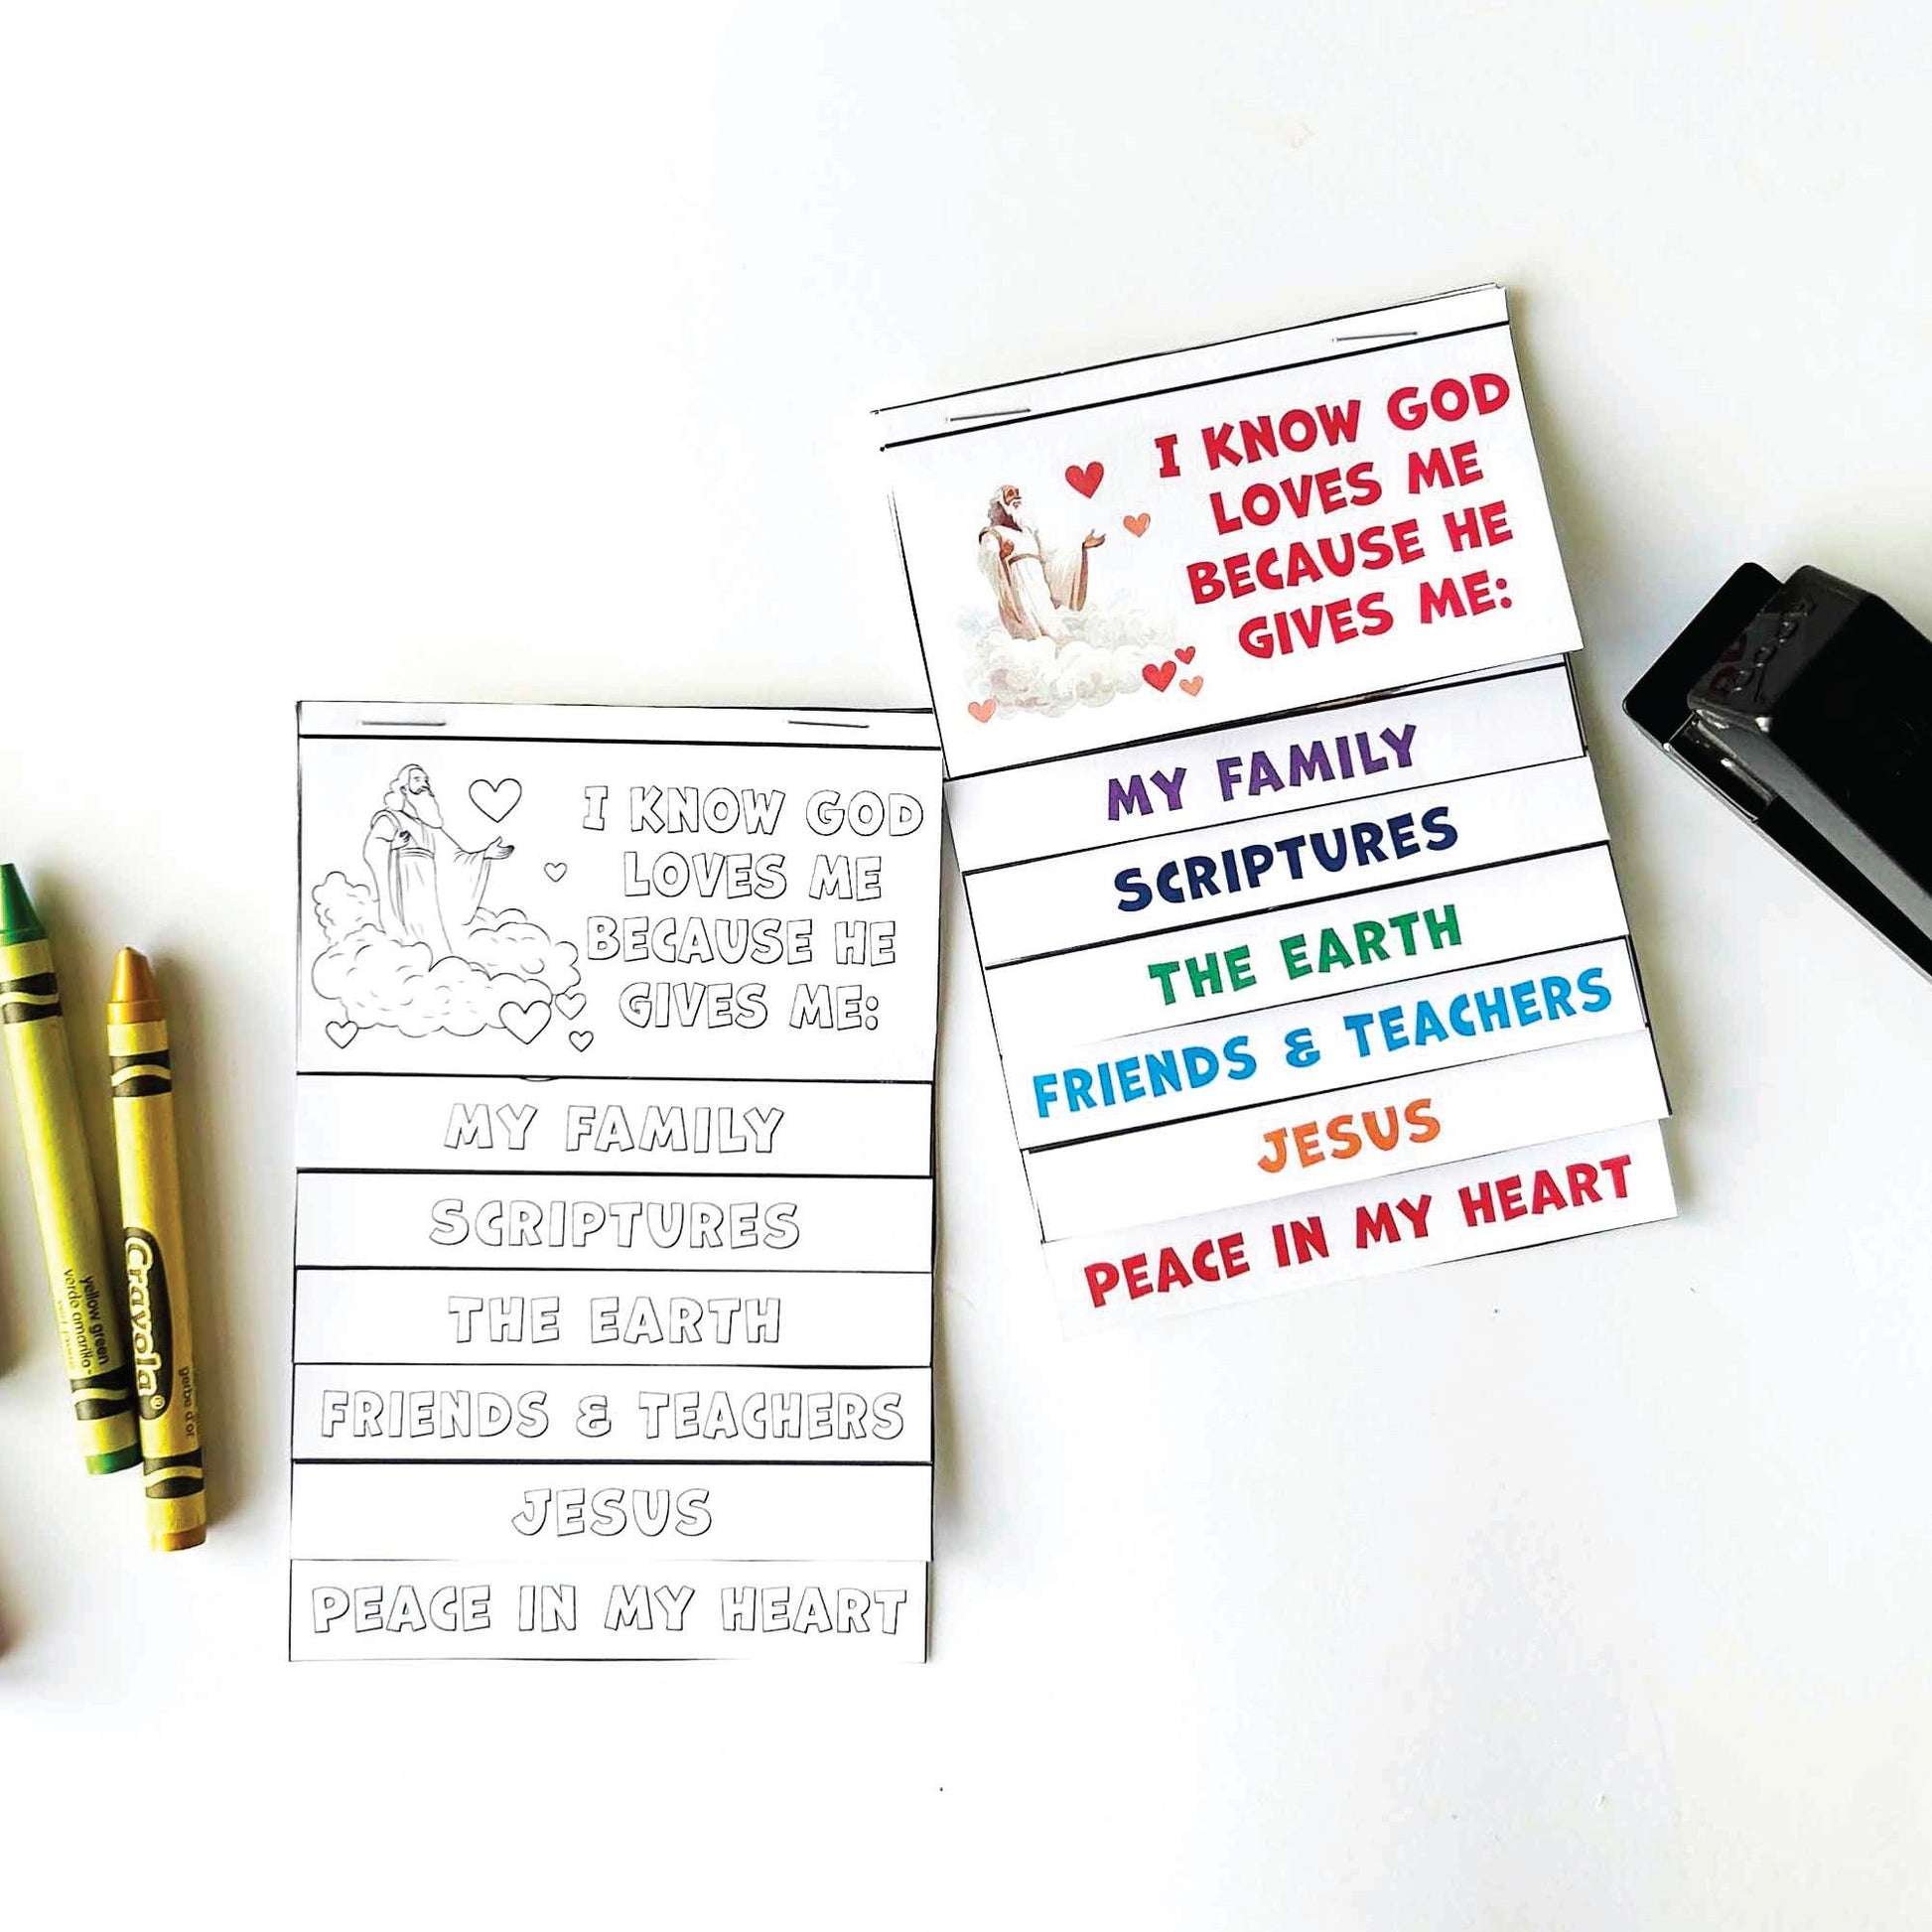 I KNOW GOD
LOVES ME
BECAUSE HE
GIVES ME:
MY FAMILY
SCRIPTURES
THE EARTH
FRIENDS & TEACHERS
JESUS
PEACE IN MY HEART
I KNOW GOD
LOVES ME
BECAUSE HE
GIVES ME:
MY FAMILY
SCRIPTURES
THE EARTH
FRIENDS & TEACHERS
JESUS
PEACE IN MY HEART
yellow green
Crayola®